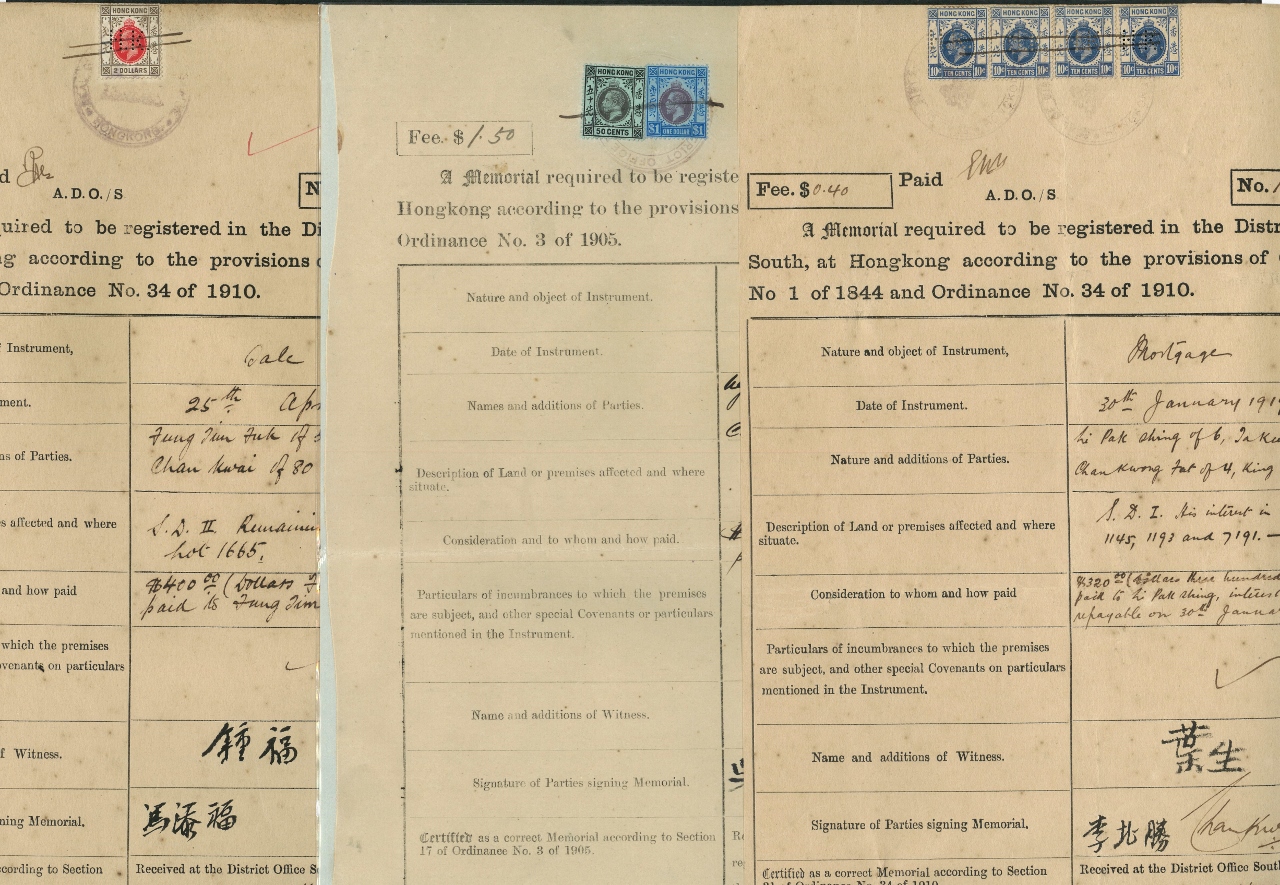 HONG KONG
2 DOLLARS
A.D.O./S
uired to be registered in the Di
ng according to the provisions
Ordinance No. 34 of 1910.
f Instrument,
Sale
ment.
25th Apr
ns of Parties.
Chan Kwai of 80
s affected and where
S. D. II. Remainin
Lot 1665.
$400.00 (Dollars
and how paid
paid to Fung
which the premises
ovenants on particulars
f Witness.
鍾福
ning Memorial.
馮添福
ccording to Section
Received at the District Office S
HONG KONG
HONG KONG
50 CENTS
$1 ONE DOLLAR $1
Fee. $ 1.50
A Memorial required to be registe
Hongkong according to the provisions
Ordinance No. 3 of 1905.
Nature and object of Instrument.
Date of Instrument.
Names and additions of Parties.
Description of Land or premises affected and where
situate.
Consideration and to whom and how paid.
Particulars of incumbrances to which the premises
are subject, and other special Covenants or particulars
mentioned in the Instrument.
Name and additions of Witness.
Signature of Parties signing Memorial.
Certified as a correct Memorial according to Section
17 of Ordinance No. 3 of 1905.
Re
re
HONG KONG HONG KONG HONG KONG HONG KONG
10c TEN CENTS 10c 10c TEN CENTS 10c 10c TEN CENTS 10c 10c TEN CENTS 10c
Fee. $ 0.40
Paid
A.D.O./S
No.
A Memorial required to be registered in the Distr
South, at Hongkong according to the provisions of
No 1 of 1844 and Ordinance No. 34 of 1910.
Nature and object of Instrument,
Mortgage
Date of Instrument.
30th January 191
Nature and additions of Parties.
Li Pak Shing of 6,
Chan Kwong Fat of 4, King
Description of Land or premises affected and where
situate.
S. D. I. His interest in
1145, 1193 and 7191.
Consideration to whom and how paid
$320.00 (Dollars three hundred
paid to Li Pak Shing, interest
repayable on 30th Janua
Particulars of incumbrances to which the premises
are subject, and other special Covenants on particulars
mentioned in the Instrument.
Name and additions of Witness.
葉生
Signature of Parties signing Memorial.
李北勝
Chan Kw
Certified as a correct Memorial according to Section
Received at the District Office Sout